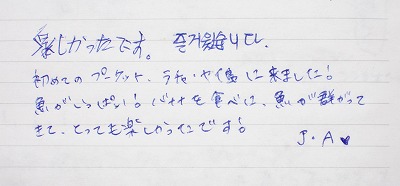 楽しかったです。 즐거웠습니다.
初めてのプーケット、ラチャ・ヤイ島に来ました!
魚がいっぱい! バナナを食べに、魚が群がって
きて、とっても楽しかったです!
J・A ♥